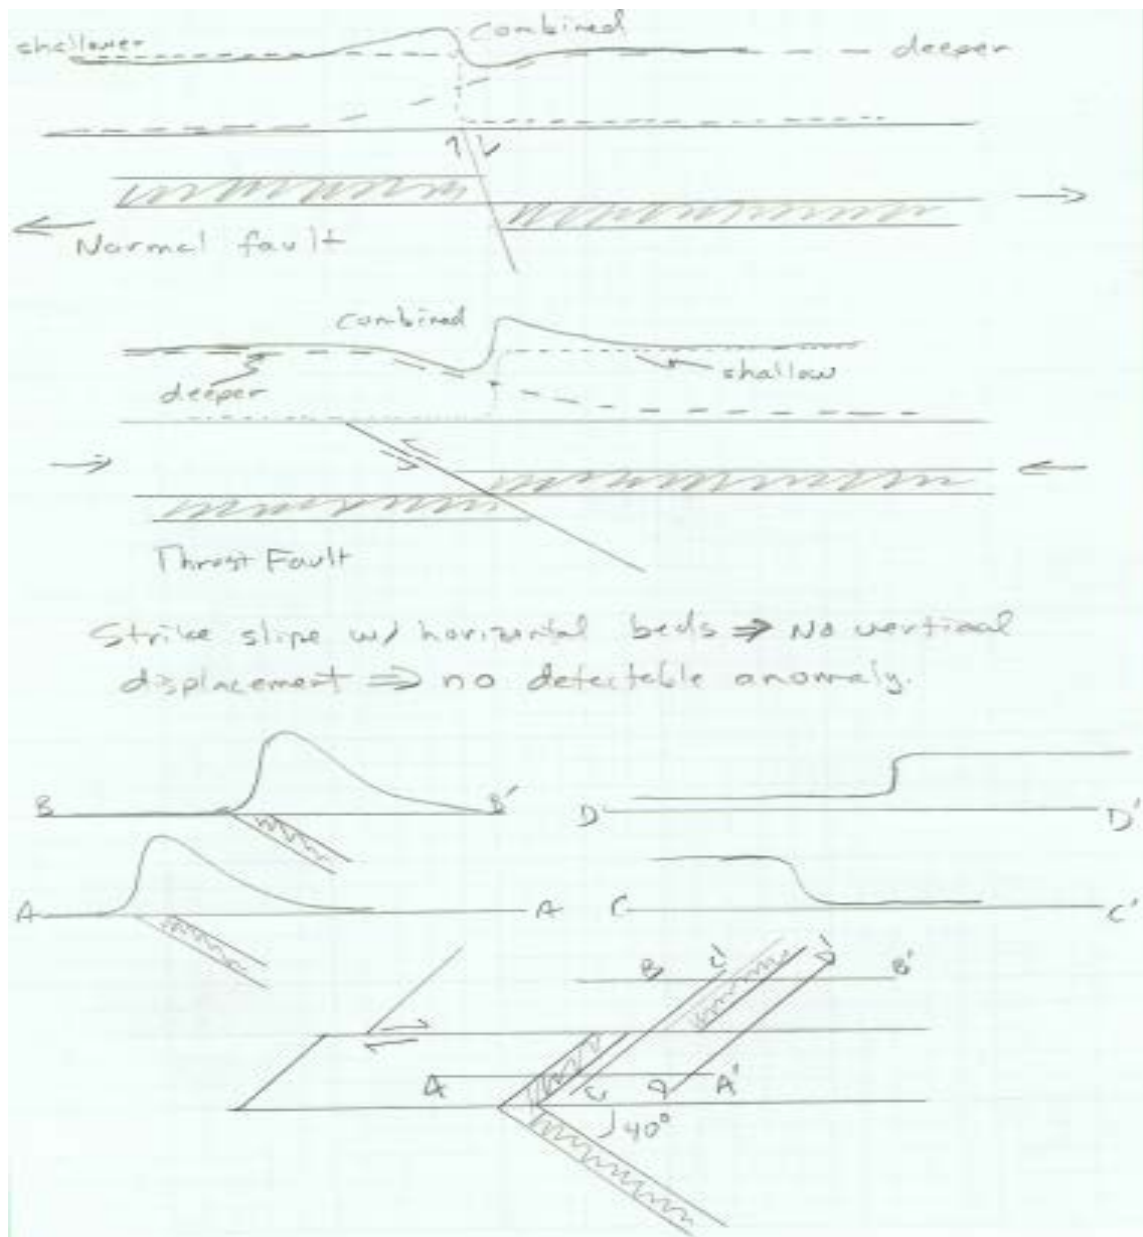 combined
shallower
deeper
Normal fault
combined
deeper
shallow
Thrust Fault
Strike slipe w/ horizontal beds ⇒ No vertical
displacement ⇒ no detectable anomaly.
B B'
D D'
A A
C C'
B C' D' B'
A C D A'
40°